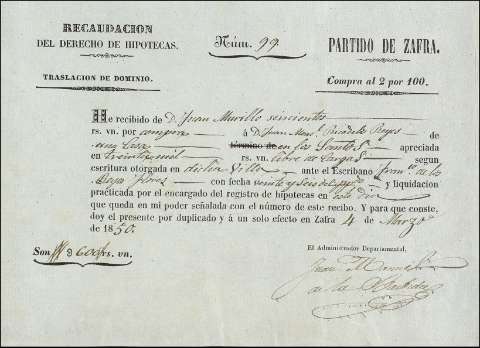 RECAUDACION
DEL DERECHO DE HIPOTECAS.
Núm. 99.
PARTIDO DE ZAFRA.
TRASLACION DE DOMINIO.
Compra al 2 por 100.
He recibido de D. Juan Murillo seiscientos
rs. vn. por compra á D. Juan Man.l Reyes de
una Casa término de en los Santos apreciada
en treinta mil rs. vn. libre de Cargas según
escritura otorgada en dicha Villa ante el Escribano Fran.co de la
Flores con fecha veinte y Seis de y liquidacion
practicada por el encargado del registro de hipotecas en
que queda en mi poder señalada con el número de este recibo. Y para que conste,
doy el presente por duplicado y á un solo efecto en Zafra 4 de Marzo
de 1850.
Son D 600 rs. vn.
El Administrador Departamental.
Juan
de la